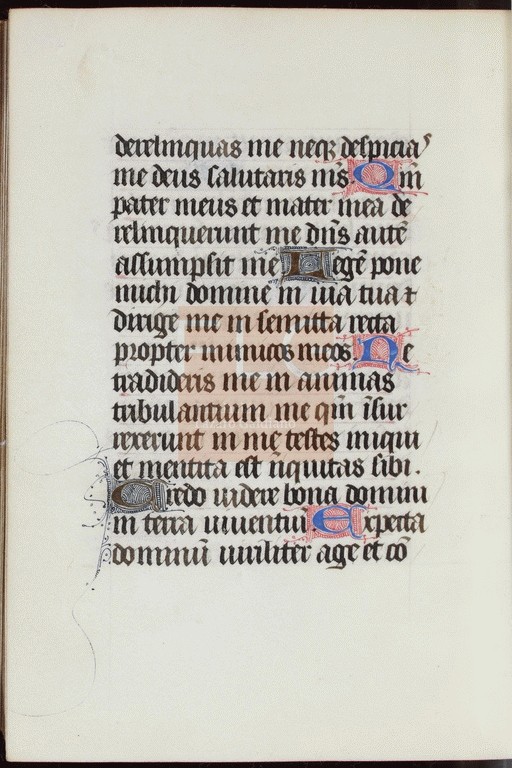 derelinquas me neqz despicias
me deus salutaris ms. Qm̄
pater meus et mater mea de
relinquerunt me dn̄s autē
assumpsit me Legē pone
michi domine in uia tua ⁊
dirige me in semitta recta
propter inimicos meos Ne
tradideris me in animas
tribulantium me qm̄ īsur
rexerunt in me testes iniqui
et mentita est īiquitas sibi.
Credo uidere bona domini
in terra uiuentiū. Expecta
dominū uiriliter age et cō